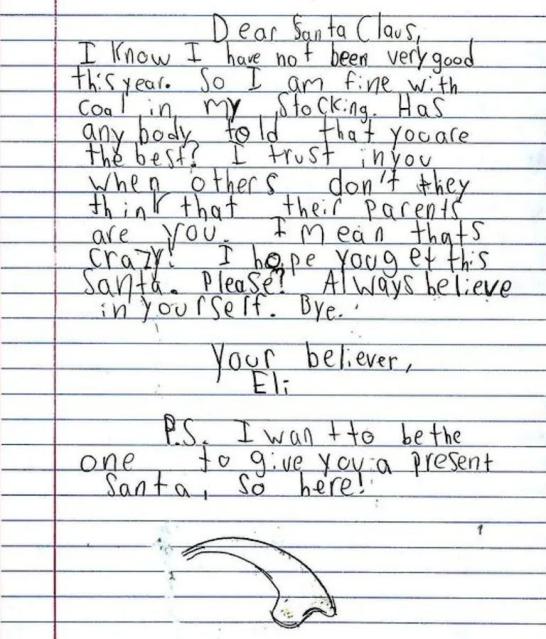 Dear Santa Claus,
I know I have not been very good
this year. So I am fine with
coal in my stocking. Has
any body told that you are
the best? I trust in you
when others don't they
think that their parents
are you. I mean thats
crazy! I hope you get this
Santa. Please! Always believe
in yourself. Bye.
Your believer,
Eli
P.S. I want to be the
one to give you a present
Santa, so here!